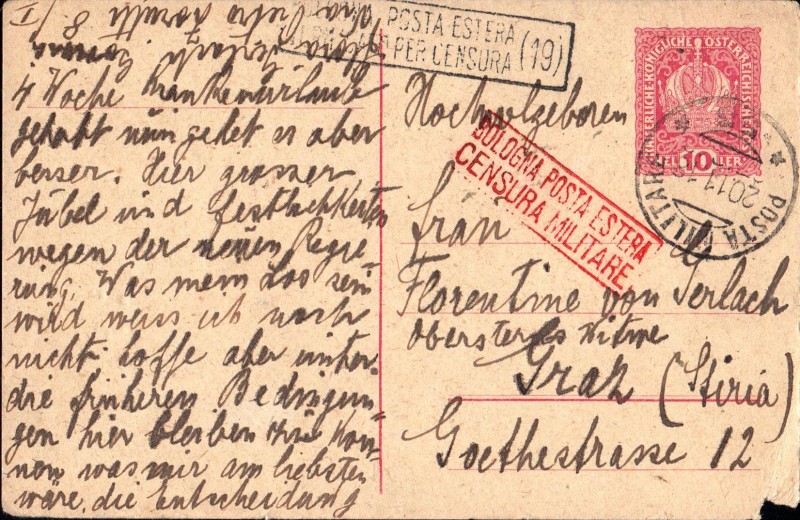 POSTA ESTERA
PER CENSURA (19)
4 Woche Krankenurlaub
gehabt nun gehet es aber
besser. Hier grosser
Jubel und Festlichkeiten
wegen der neuen Regie
rung. Was mein Los sein
wird weiss ich noch
nicht hoffe aber unter
die früheren Bedingun
gen hier bleiben zu kön
nen was mir am liebsten
wäre, die Entscheidung
Hochwolgeboren
Frau
Florentine von Gerlach
Oberstens Witwe
Graz (Stiria)
Goethestrasse 12
BOLOGNA POSTA ESTERA
CENSURA MILITARE
KAISERLICHE KÖNIGLICHE ÖSTERREICHISCHE
10
POSTA MILITARE
20.11